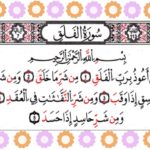 سُورَةُ الفَلَقِ
بِسْمِ اللَّهِ الرَّحْمَٰنِ الرَّحِيمِ
أَعُوذُ بِرَبِّ الْفَلَقِ ١ مِن شَرِّ مَا خَلَقَ ٢ وَمِن شَرِّ
إِذَا وَقَبَ ٣ وَمِن شَرِّ النَّفَّٰثَٰتِ فِي الْعُقَدِ ٤
وَمِن شَرِّ حَاسِدٍ إِذَا حَسَدَ ٥